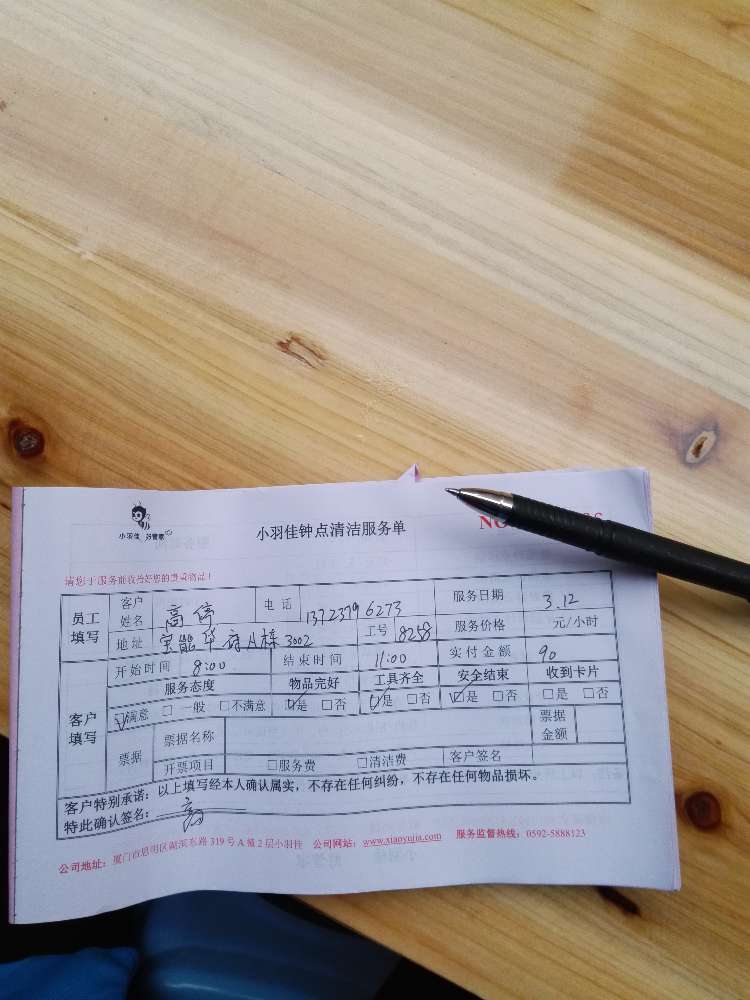 小羽佳 好管家
小羽佳钟点清洁服务单
NO
请您于服务前收拾好您的贵重物品！
员工填写 客户姓名 高 电话 13723796273 服务日期 3.12
地址 宝能华府A栋3002 工号 8258 服务价格 元/小时
客户填写 开始时间 8:00 结束时间 11:00 实付金额 90
服务态度 物品完好 工具齐全 安全结束 收到卡片
☑满意 □一般 □不满意 ☑是 □否 ☑是 □否 ☑是 □否 □是 □否
票据 票据名称 票据金额
开票项目 □服务费 □清洁费 客户签名
客户特别承诺：以上填写经本人确认属实，不存在任何纠纷，不存在任何物品损坏。
特此确认签名： 高
公司地址：厦门市思明区湖滨东路319号A幢2层小羽佳 公司网站：www.xiaoyujia.com 服务监督热线：0592-5888123